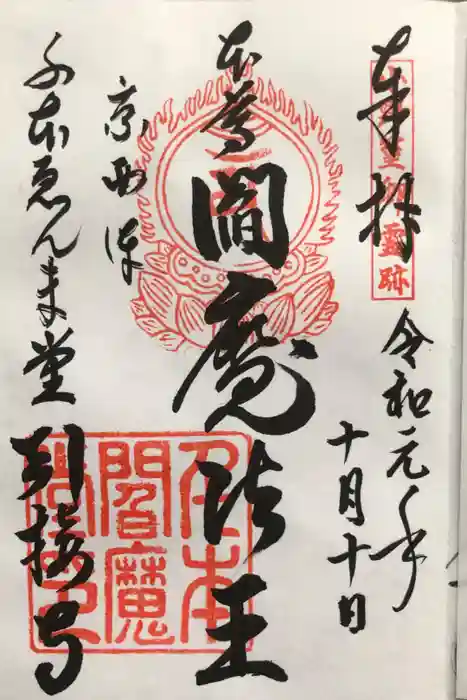 奉拝
霊跡
令和元年
十月十日
本尊
閻魔法王
京西陣
千本ゑんま堂
引接寺
千本
閻魔